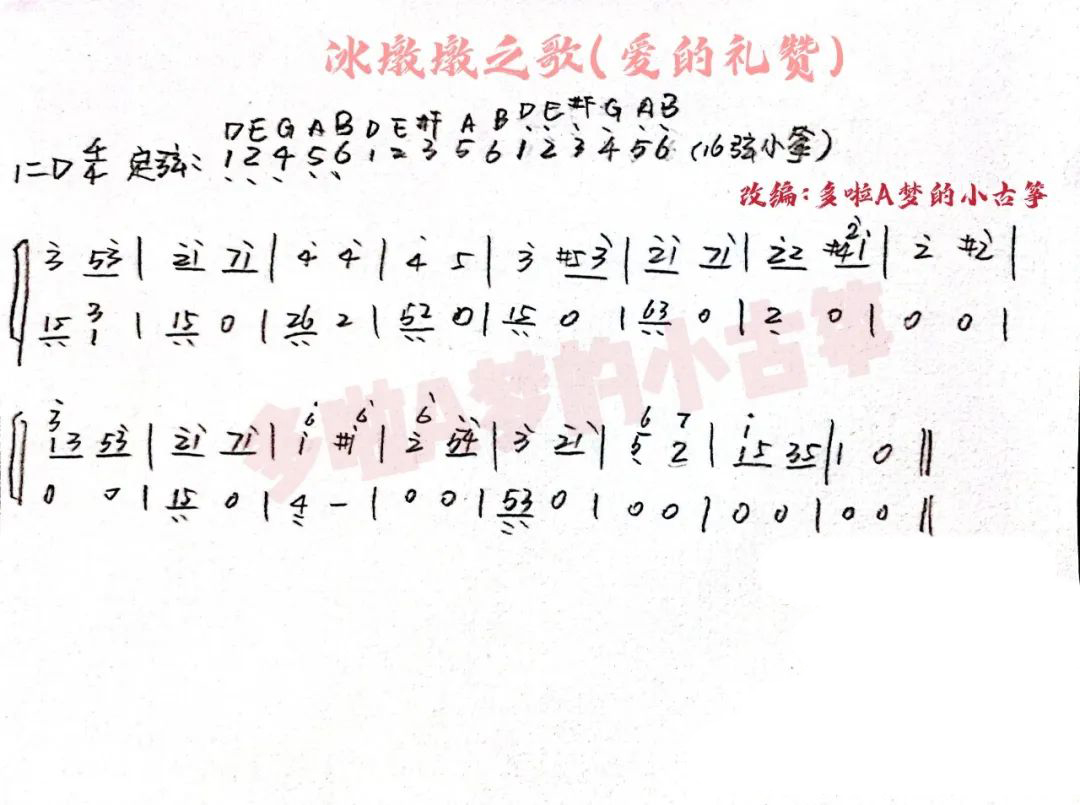 冰墩墩之歌(爱的礼赞)
D E G A B D E #F A B D E #F G A B
1=D 4/4 定弦: 1 2 4 5 6 1 2 3 5 6 1 2 3 4 5 6 (16弦小筝)
改编:多啦A梦的小古筝
3 53 | 21 71 | 4 4 | 4 5 | 3 #5 3 | 21 71 | 22 #41 | 2 #2 |
2
15 3 | 15 0 | 26 2 | 52 0 | 15 0 | 63 0 | 2 0 | 0 0 |
1
多啦A梦的小古筝
3 6 6 6 6 7 i
13 53 | 21 71 | 1 #1 | 2 54 | 3 21 | 5 2 | 15 35 | 1 0 ||
0 0 | 15 0 | 4 - | 0 0 | 53 0 | 0 0 | 0 0 | 0 0 ||